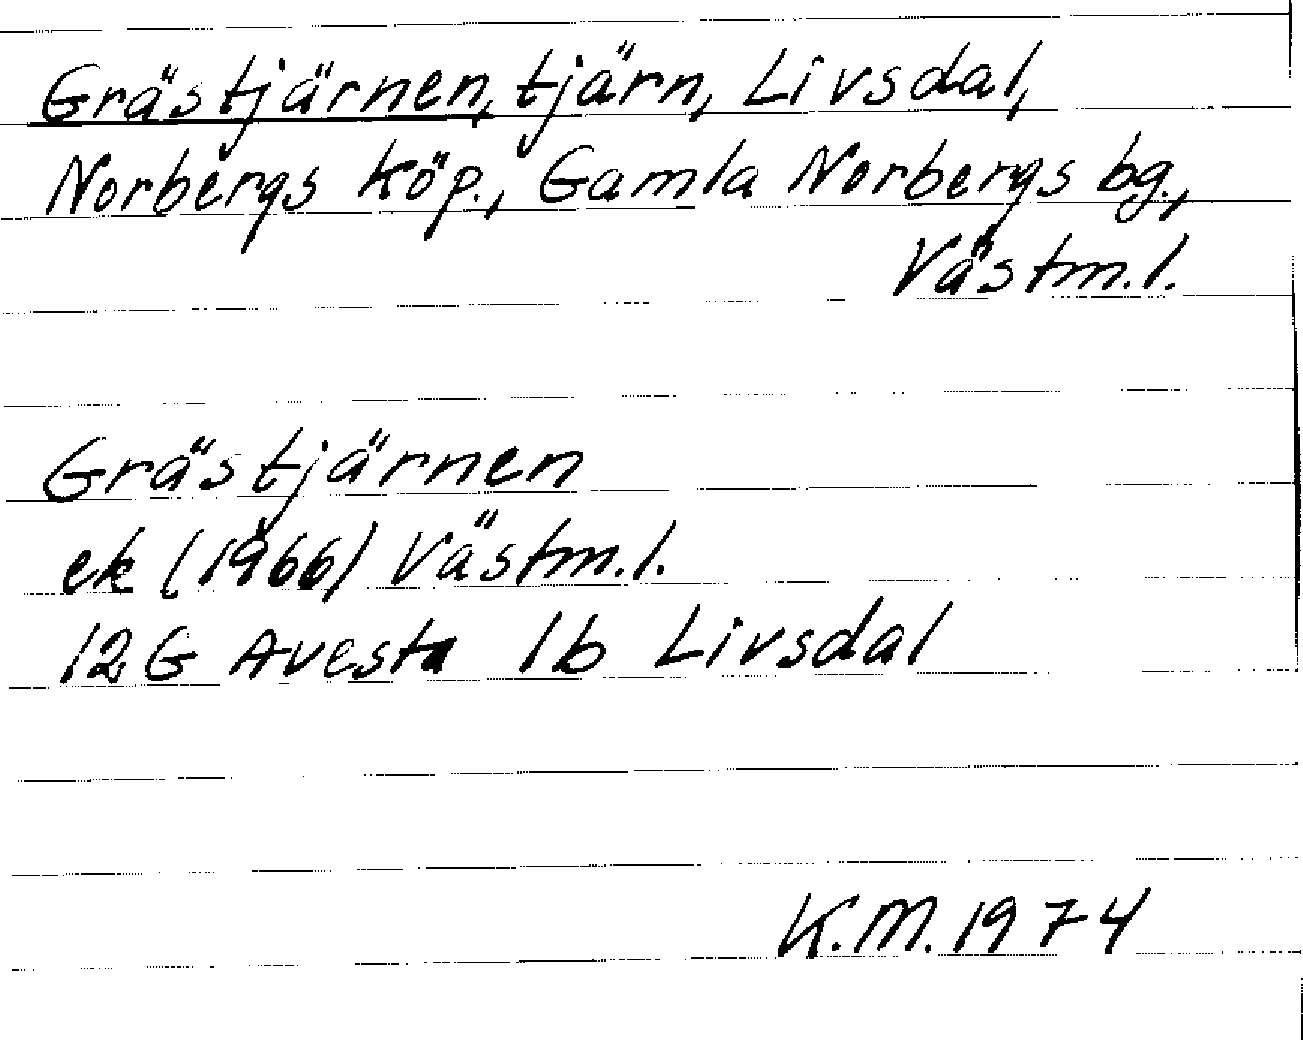 Grästjärnen, tjärn, Livsdal,
Norbergs köp., Gamla Norbergs bg.,
Västm.l.
Grästjärnen
ek (1966) Västm.l.
12 G Avesta 1b Livsdal
K.M. 1974